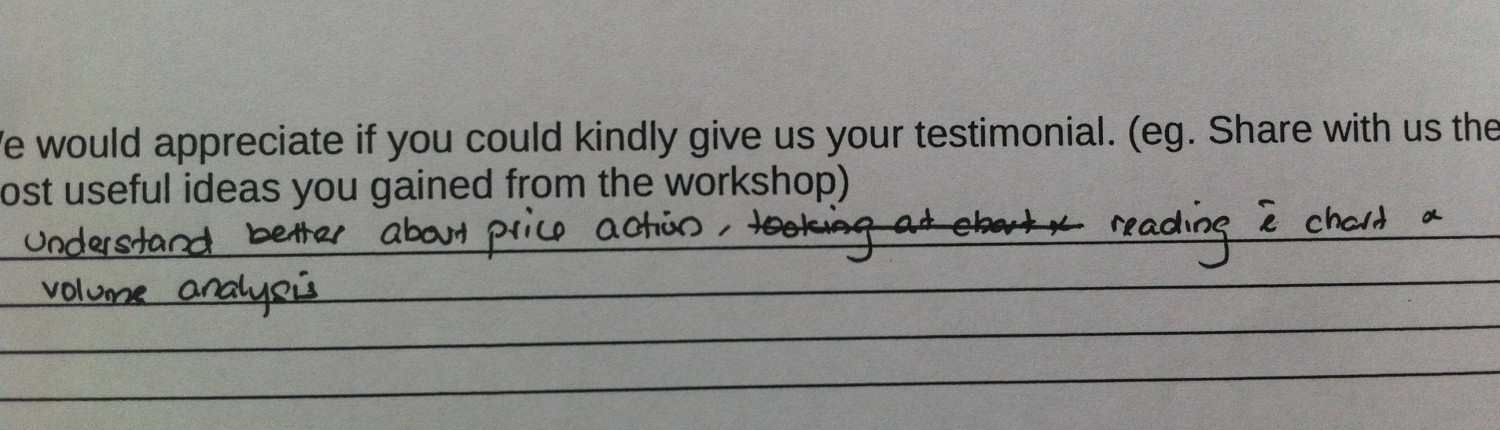 e would appreciate if you could kindly give us your testimonial. (eg. Share with us the
ost useful ideas you gained from the workshop)
Understand better about price action, looking at chart & reading ē chart &
volume analysis